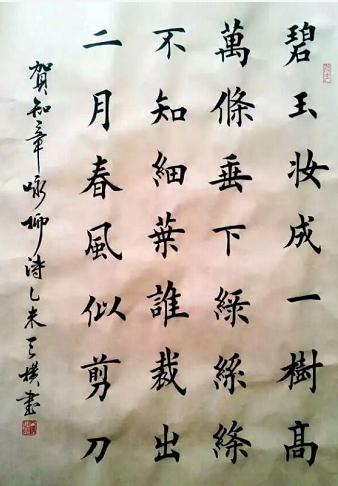 碧玉妆成一樹高
萬條垂下緑絲絛
不知細葉誰裁出
二月春風似剪刀
賀知章咏柳詩乙未樸書